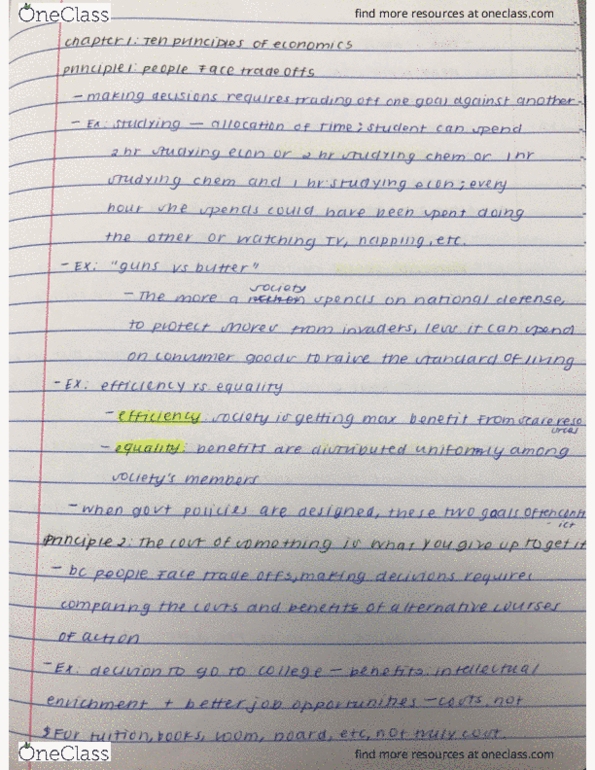 OneClass
find more resources at oneclass.com
Chapter 1: Ten principles of economics
principle 1: people face trade offs
- making decisions requires trading off one goal against another
- Ex: studying — allocation of time; student can spend
2 hr studying econ or 2 hr studying chem or 1 hr
studying chem and 1 hr studying econ; every
hour she spends could have been spent doing
the other or watching TV, napping, etc.
- Ex: "guns vs butter"
society
- The more a spends on national defense,
to protect shores from invaders, less it can spend
on consumer goods to raise the standard of living
- Ex: efficiency vs equality
- efficiency: society is getting max benefit from scarce reso
urces
- equality: benefits are distributed uniformly among
society's members
- when govt policies are designed, these two goals often confl
- ict
Principle 2: The cost of something is what you give up to get it
- bc people face trade offs, making decisions requires
comparing the costs and benefits of alternative courses
of action
- Ex: decision to go to college - benefits: intellectual
enrichment + better job opportunities - costs: not
$ for tuition, books, room, board, etc, not truly cost.
OneClass
find more resources at oneclass.com